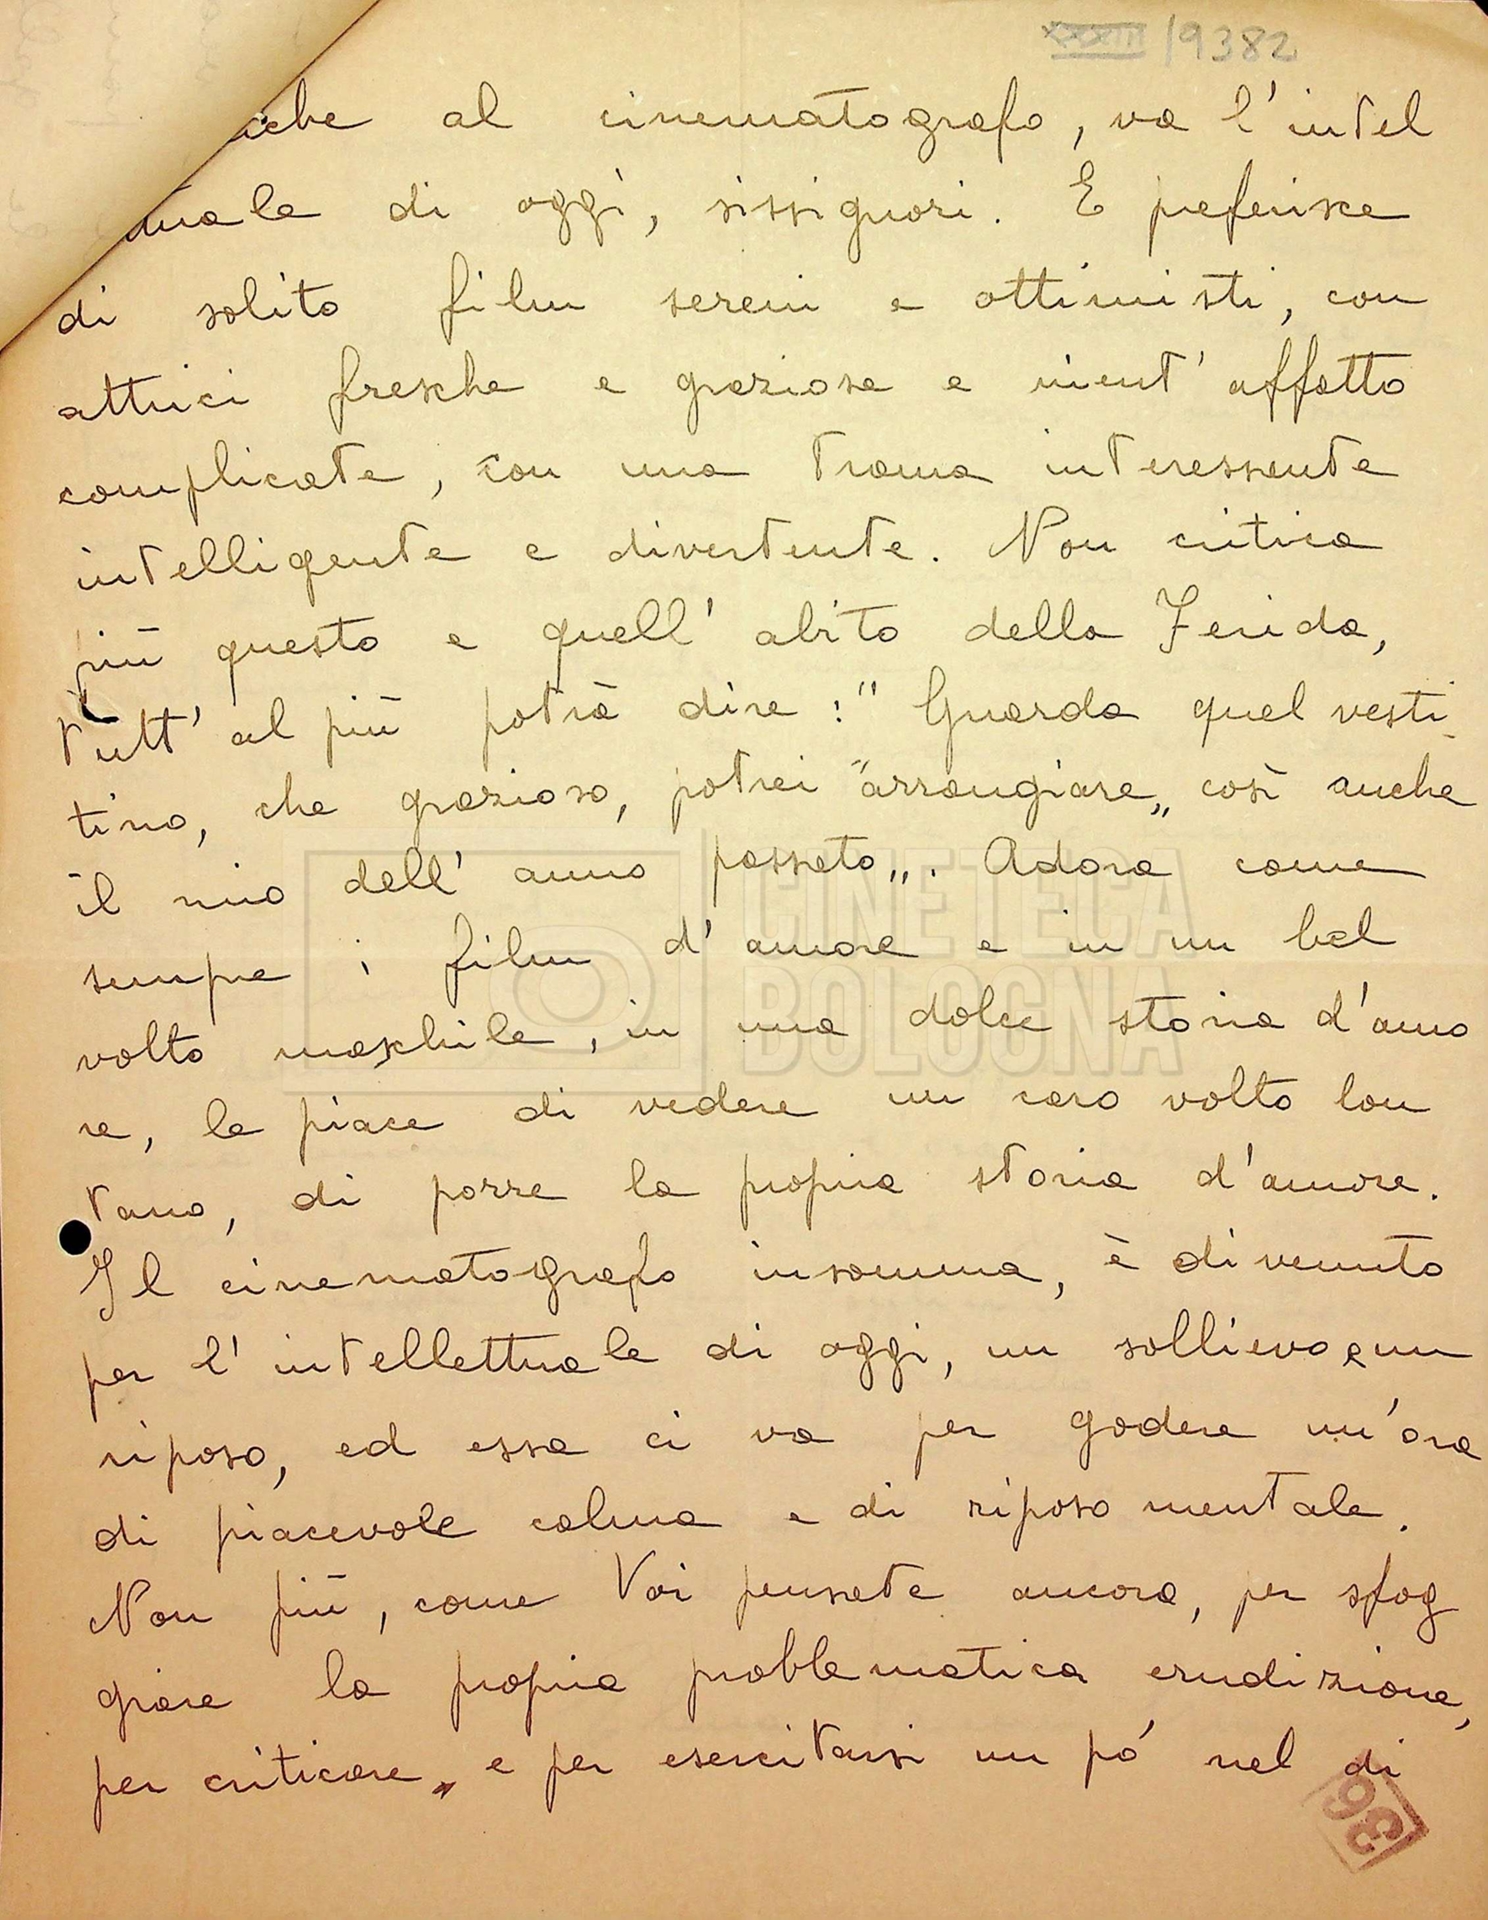 XXXIII/9382
al cinematografo, va l'intel
di oggi, sissignori. E preferisce
di solito film sereni e ottimisti, con
attrici fresche e graziose e nient'affatto
complicate, con una trama interessante
intelligente e divertente. Non critica
più questo e quell'abito della Ferida,
tutt'al più potrà dire: "Guarda quel vesti-
tino, che grazioso, potrei "arrangiare„ così anche
il mio dell'anno passato„. Adora come
sempre i film d'amore e in un bel
volto maschile, in una dolce storia d'amo
re, le piace di vedere un caro volto lon
tano, di porre la propria storia d'amore.
Il cinematografo insomma, è divenuto
per l'intellettuale di oggi, un sollievo e un
riposo, ed essa ci va per godere un'ora
di piacevole calma e di riposo mentale.
Non più, come Voi pensate ancora, per sfog
giare la propria problematica erudizione,
per criticare, e per esercitarsi un pó nel di
36
CINETECA
BOLOGNA